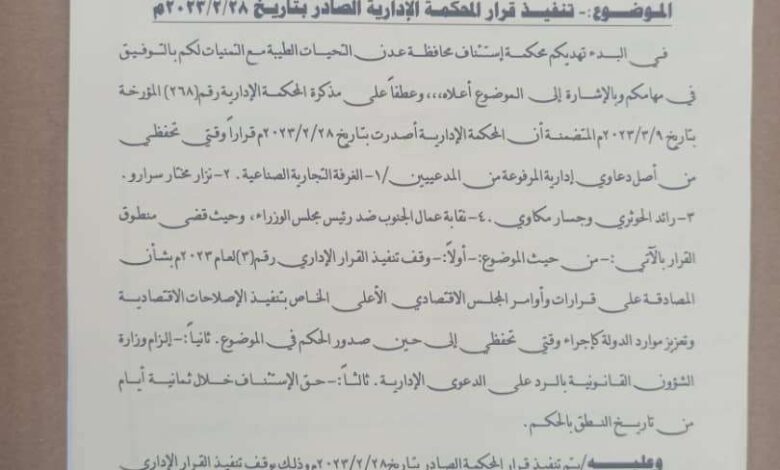 الموضوع:- تنفيذ قرار المحكمة الإدارية الصادر بتاريخ ٢٠٢٣/٢/٢٨م
في البدء تهديكم محكمة إستئناف محافظة عدن التحيات الطيبة مع التمنيات لكم بالتوفيق
في مهامكم وبالإشارة إلى الموضوع أعلاه،،، وعطفاً على مذكرة المحكمة الإدارية رقم(٢٦٨) المؤرخة
بتاريخ ٢٠٢٣/٣/٩م المتضمنة أن المحكمة الإدارية أصدرت بتاريخ ٢٠٢٣/٢/٢٨م قراراً وقتي تحفظي
من أصل دعاوي إدارية المرفوعة من المدعيين /١- الغرفة التجارية الصناعية . ٢- نزار مختار سرارو .
٣- رائد الحوثري وجسار مكاوي . ٤- نقابة عمال الجنوب ضد رئيس مجلس الوزراء، وحيث قضى منطوق
القرار بالآتي :- من حيث الموضوع:- أولاً:- وقف تنفيذ القرار الإداري رقم(٣)لعام ٢٠٢٣م بشأن
المصادقة على قرارات وأوامر المجلس الاقتصادي الأعلى الخاص بتنفيذ الإصلاحات الاقتصادية
وتعزيز موارد الدولة كإجراء وقتي تحفظي إلى حين صدور الحكم في الموضوع . ثانياً:- إلزام وزارة
الشؤون القانونية بالرد على الدعوى الإدارية . ثالثاً:- حق الإستئناف خلال ثمانية أيام
من تاريخ النطق بالحكم .
وعليه/ يتم تنفيذ قرار المحكمة الصادر بتاريخ ٢٠٢٣/٢/٢٨م وذلك بوقف تنفيذ القرار الإداري